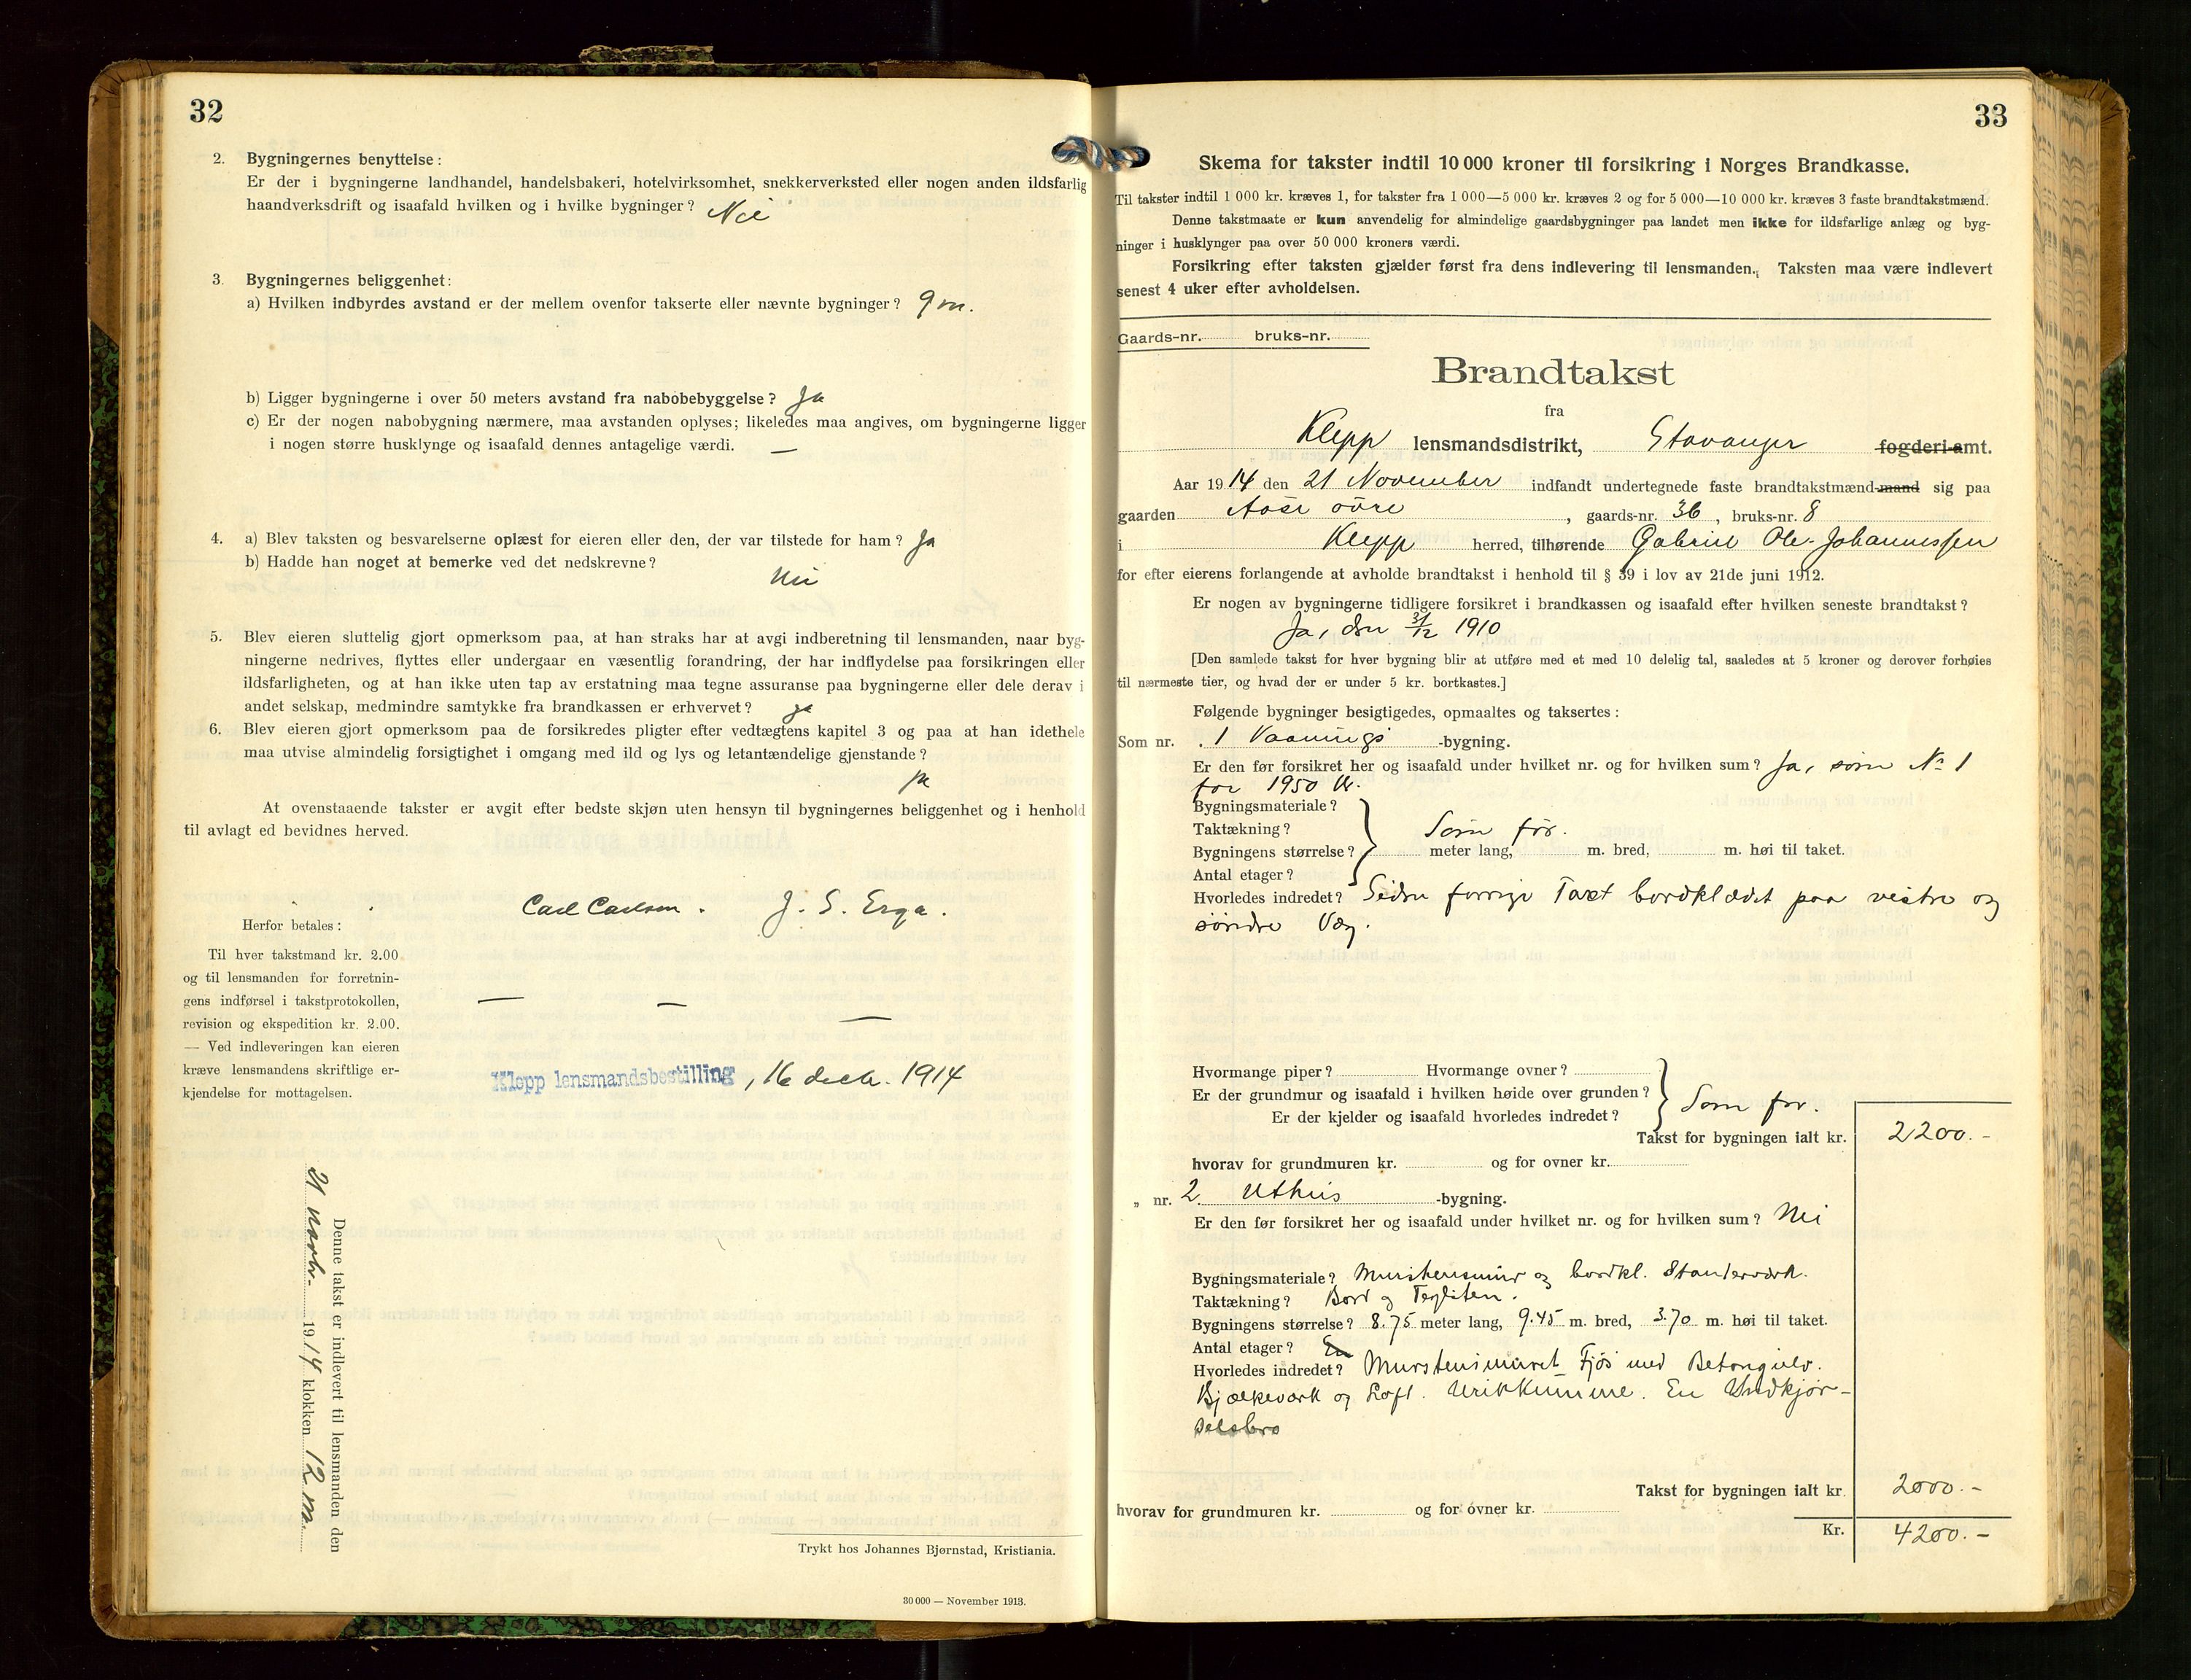 32
2. Bygningernes benyttelse:
Er der i bygningerne landhandel, handelsbakeri, hotelvirksomhet, snekkerverksted eller nogen anden ildsfarlig
haandverksdrift og isaafald hvilken og i hvilke bygninger? Nei
3. Bygningernes beliggenhet:
a) Hvilken indbyrdes avstand er der mellem ovenfor takserte eller nævnte bygninger? 9 m.
b) Ligger bygningerne i over 50 meters avstand fra nabobebyggelse? Ja
c) Er der nogen nabobygning nærmere, maa avstanden oplyses; likeledes maa angives, om bygningerne ligger
i nogen større husklynge og isaafald dennes antagelige værdi. —
4. a) Blev taksten og besvarelserne oplæst for eieren eller den, der var tilstede for ham? Ja
b) Hadde han noget at bemerke ved det nedskrevne?
Nei
5. Blev eieren sluttelig gjort opmerksom paa, at han straks har at avgi indberetning til lensmanden, naar byg-
ningerne nedrives, flyttes eller undergaar en væsentlig forandring, der har indflydelse paa forsikringen eller
ildsfarligheten, og at han ikke uten tap av erstatning maa tegne assuranse paa bygningerne eller dele derav i
andet selskap, medmindre samtykke fra brandkassen er erhvervet? ja
6. Blev eieren gjort opmerksom paa de forsikredes pligter efter vedtægtens kapitel 3 og paa at han idethele
maa utvise almindelig forsigtighet i omgang med ild og lys og letantændelige gjenstande?
ja
At ovenstaaende takster er avgit efter bedste skjøn uten hensyn til bygningernes beliggenhet og i henhold
til avlagt ed bevidnes herved.
Carl Carlsen. J. S. Erga.
Herfor betales:
Til hver takstmand kr. 2.00
og til lensmanden for forretnin-
gens indførsel i takstprotokollen,
revision og ekspedition kr. 2.00.
— Ved indleveringen kan eieren
kræve lensmandens skriftlige er-
kjendelse for mottagelsen.
Klepp lensmandsbestilling, 16 decb. 1914
Denne takst er indlevert til lensmanden den
21 novbr. 1914 klokken 12 m.
Trykt hos Johannes Bjørnstad, Kristiania.
30 000 — November 1913.
33
Skema for takster indtil 10 000 kroner til forsikring i Norges Brandkasse.
Til takster indtil 1 000 kr. kræves 1, for takster fra 1 000—5 000 kr. kræves 2 og for 5 000—10 000 kr. kræves 3 faste brandtakstmænd.
Denne takstmaate er kun anvendelig for almindelige gaardsbygninger paa landet men ikke for ildsfarlige anlæg og byg-
ninger i husklynger paa over 50 000 kroners værdi.
Forsikring efter taksten gjælder først fra dens indlevering til lensmanden. Taksten maa være indlevert
senest 4 uker efter avholdelsen.
Gaards-nr. bruks-nr.
Brandtakst
fra
Klepp lensmandsdistrikt, Stavanger fogderi-amt.
Aar 1914 den 21 November indfandt undertegnede faste brandtakstmænd-mand sig paa
gaarden øvre, gaards-nr. 36, bruks-nr. 8
i Klepp herred, tilhørende Gabriel Ole Johannessen
for efter eierens forlangende at avholde brandtakst i henhold til § 39 i lov av 21de juni 1912.
Er nogen av bygningerne tidligere forsikret i brandkassen og isaafald efter hvilken seneste brandtakst?
Ja, den 31/12 1910
[Den samlede takst for hver bygning blir at utføre med et med 10 delelig tal, saaledes at 5 kroner og derover forhøies
til nærmeste tier, og hvad der er under 5 kr. bortkastes.]
Følgende bygninger besigtigedes, opmaaltes og taksertes:
Som nr. 1 Vaanings -bygning.
Er den før forsikret her og isaafald under hvilket nr. og for hvilken sum? Ja, som No 1
for 1950 Kr.
Bygningsmateriale?
Taktækning? Som før.
Bygningens størrelse? meter lang, m. bred, m. høi til taket.
Antal etager?
Hvorledes indredet? Siden forrige Taxt bordklædet paa vestre og
søndre Væg.
Hvormange piper? Hvormange ovner?
Er der grundmur og isaafald i hvilken høide over grunden? Som før.
Er der kjelder og isaafald hvorledes indredet?
Takst for bygningen ialt kr. 2200.-
hvorav for grundmuren kr. og for ovner kr.
„ nr. 2 Uthus -bygning.
Er den før forsikret her og isaafald under hvilket nr. og for hvilken sum? Nei
Bygningsmateriale? Murstensmur og bordkl. Standerværk.
Taktækning? Bord og Teglsten.
Bygningens størrelse? 8.75 meter lang, 9.45 m. bred, 3.70 m. høi til taket.
Antal etager? En
Hvorledes indredet? Murstensmuret Fjøs med Betongulv.
Bjælkeværk og Loft. Urinkumme. En Indkjør-
selsbro
Takst for bygningen ialt kr. 2000.-
hvorav for grundmuren kr. og for ovner kr.
Kr. 4200.-